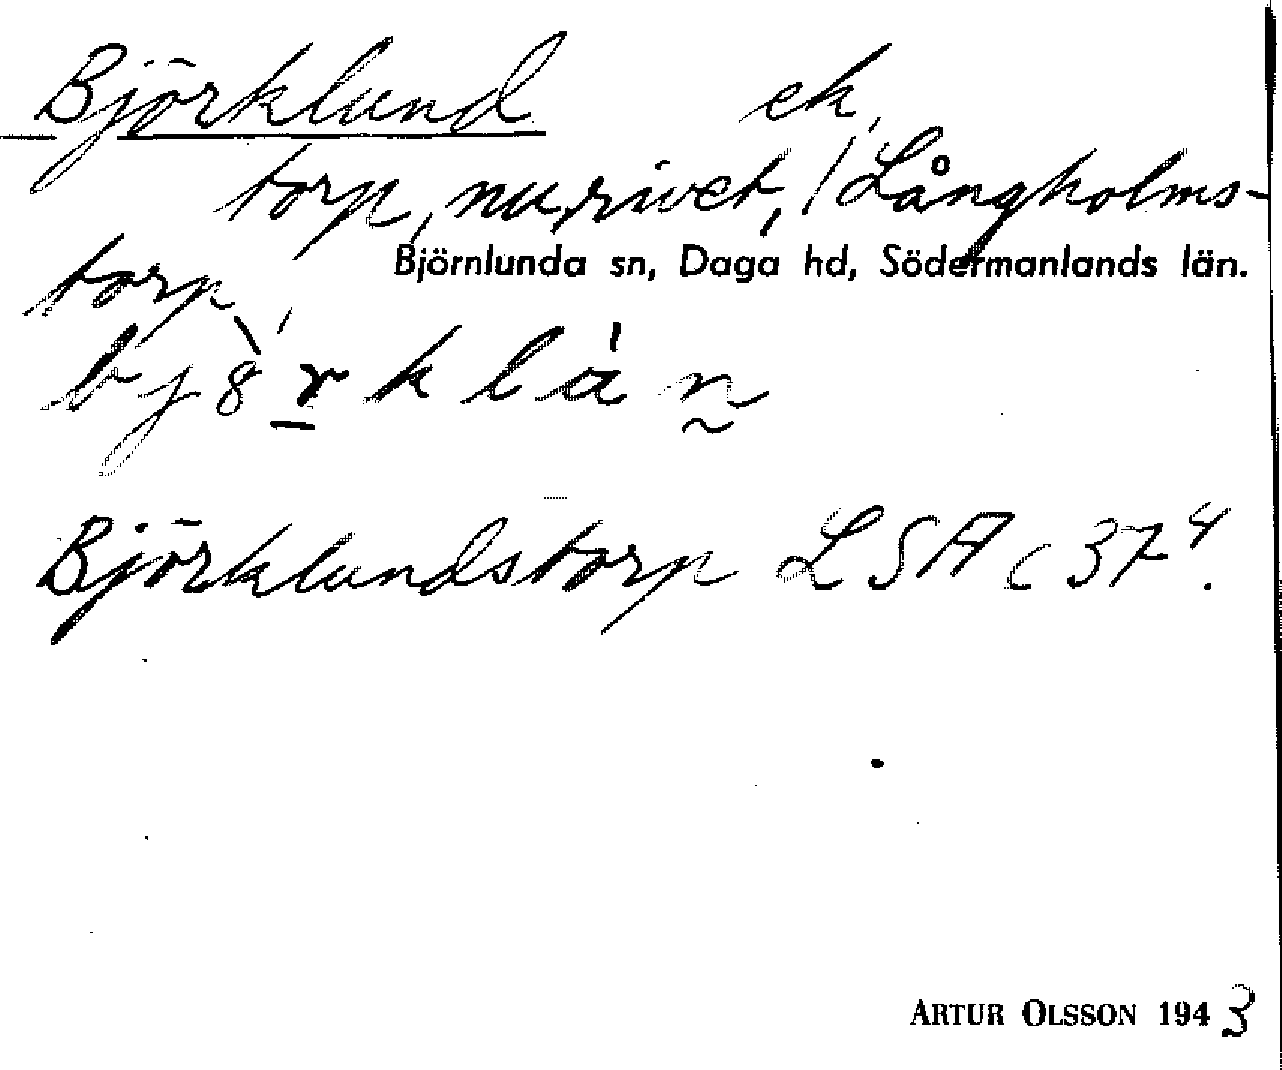 Björklund ek,
torp, nu rivet, / Långholms-
Björnlunda sn, Daga hd, Södermanlands län.
torp
Björklundstorp LSA c 37⁴.
ARTUR OLSSON 1943